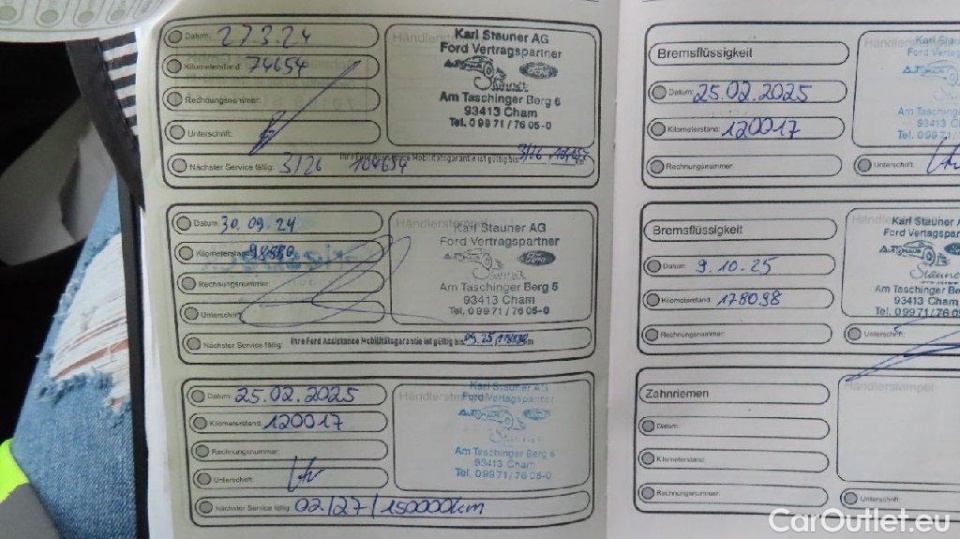 Datum: 27.3.24
Kilometerstand: 74654
Rechnungsnummer:
Unterschrift:
Nächster Service fällig: 3/26 104654
Ihre Ford Assistance Mobilitätsgarantie ist gültig bis 3/26
Karl Stauner AG
Ford Vertragspartner
Stauner
Ford
Am Taschinger Berg 5
93413 Cham
Tel. 0 99 71 / 76 05-0
Datum: 30.09.24
Kilometerstand:
Rechnungsnummer:
Unterschrift:
Nächster Service fällig:
Ihre Ford Assistance Mobilitätsgarantie ist gültig bis 09.25
km
Händlerstempel
Karl Stauner AG
Ford Vertragspartner
Stauner
Ford
Am Taschinger Berg 5
93413 Cham
Tel. 0 99 71 / 76 05-0
Datum: 25.02.2025
Kilometerstand: 120017
Rechnungsnummer:
Unterschrift:
Nächster Service fällig: 02/27/150000km
Karl Stauner AG
Ford Vertragspartner
Am Taschinger Berg 5
93413 Cham
Tel. 0 99 71 / 76 05-0
Bremsflüssigkeit
Datum: 25.02.2025
Kilometerstand: 120017
Rechnungsnummer:
Unterschrift:
Am Taschinger
93413 C
Tel. 0 99 71
Bremsflüssigkeit
Datum: 9.10.25
Kilometerstand: 178098
Rechnungsnummer:
Unterschrift:
Karl Stauner A
Ford Vertragspar
Stauner
Am Taschinger Be
93413 Cham
Tel. 0 99 71 / 76 05
Zahnriemen
Datum:
Kilometerstand:
Rechnungsnummer:
Händlerstempel
Unterschrift:
CarOutlet.eu